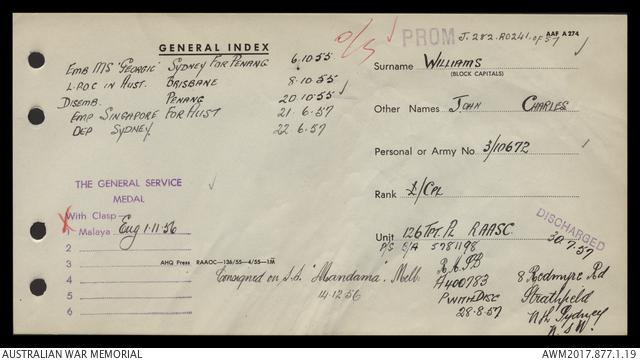 GENERAL INDEX
O/S
PROM
J.282.R0241.of 57
AAF A 274
Emb MS 'Georgic' Sydney For Penang 6.10.55
L.POC in Aust. Brisbane 8.10.55
Disemb. Penang 20.10.55
Emp Singapore For Aust 21.6.57
Dep Sydney 22.6.57
Surname Williams
(BLOCK CAPITALS)
Other Names John Charles
Personal or Army No. 3/10672
Rank L/Cpl
Unit 126 Tpt. Pl RAASC
P/S E/A 5781198
DISCHARGED
30.7.57
THE GENERAL SERVICE
MEDAL
With Clasp
1 Malaya Eng 1.11.56
2
3
4
5
6
AHQ Press RAAOC—136/55—4/55—1M
Consigned on S.S. "Mandama" Melb.
14.12.56
A400783
P with Disc
28.8.57
8 Rodmyre Rd
Strathfield
Nth Sydney
N.S.W.
AUSTRALIAN WAR MEMORIAL
AWM2017.877.1.19